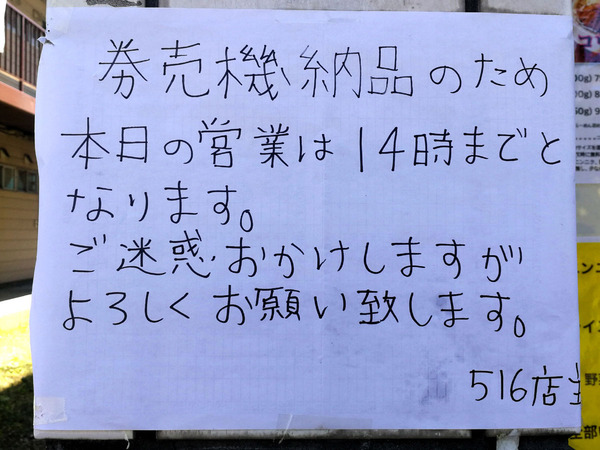 券売機納品のため
本日の営業は14時までと
なります。
ご迷惑おかけしますが
よろしくお願い致します。
516店主